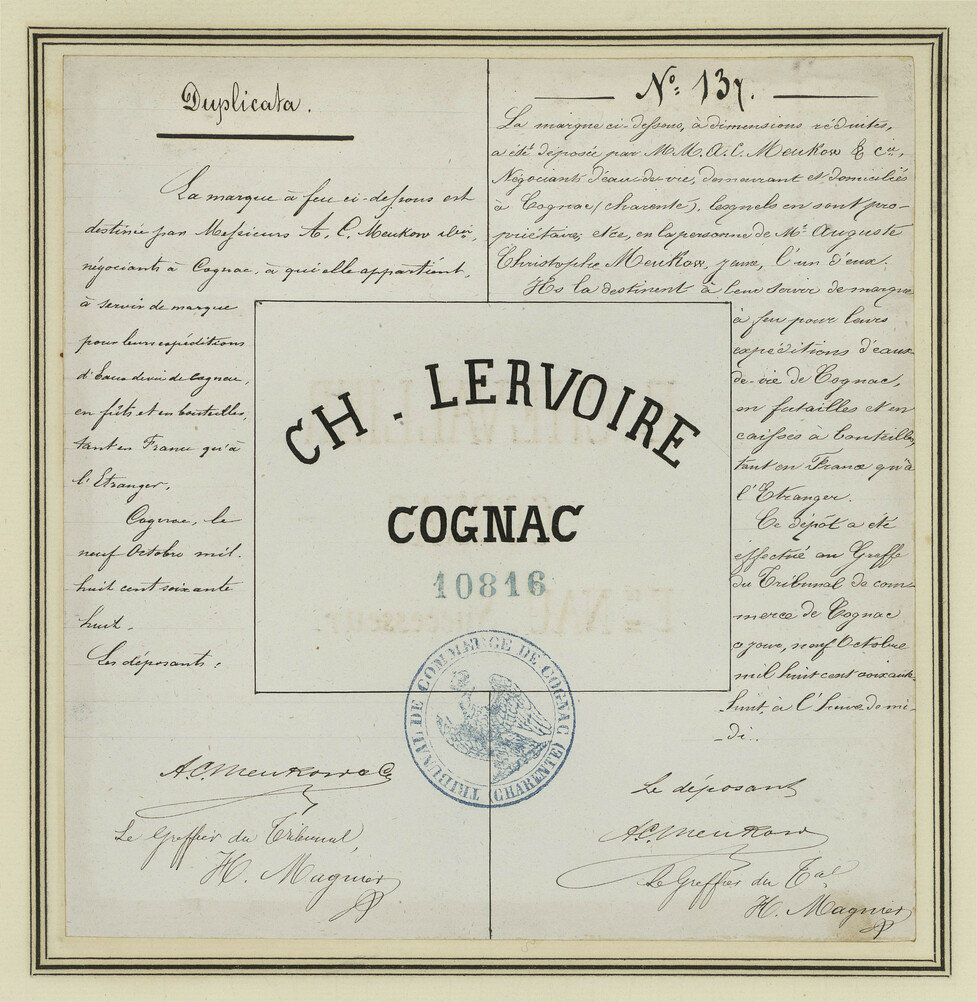 Duplicata.
La marque à feu ci-dessous est
destinée par Messieurs A. C. Meukow & Cie,
négociants à Cognac, à qui elle appartient,
à servir de marque
pour leurs expéditions
d'Eaux de vie de Cognac,
en fûts et en bouteilles,
tant en France qu'à
l'Etranger.
Cognac, le
neuf Octobre mil
huit cent soixante
huit.
Les déposants :
A. C. Meukow & Co
Le Greffier du Tribunal,
H. Magnier
No: 137.
La marque ci-dessous, à dimensions réduites,
a été déposée par M.M. A. C. Meukow & Cie,
Négociants d'eau-de-vie, demeurant et domiciliés
à Cognac (charente), lesquels en sont pro-
priétaires, et ce, en la personne de Mr. Auguste
Christophe Meukow, jeune, l'un d'eux.
Ils la destinent à leur servir de marque
à feu pour leurs
expéditions d'eaux-
de-vie de Cognac,
en futailles et en
caisses à bouteilles,
tant en France qu'à
l'Etranger.
Ce dépôt a été
effectué au Greffe
du Tribunal de com-
merce de Cognac
ce jour, neuf Octobre
mil huit cent soixante-
huit, à l'heure de mi-
-di.
Le déposant
A. C. Meukow
Le Greffier du Tal
H. Magnier
CH. LERVOIRE
COGNAC
10816
TRIBUNAL DE COMMERCE DE COGNAC
(CHARENTE)